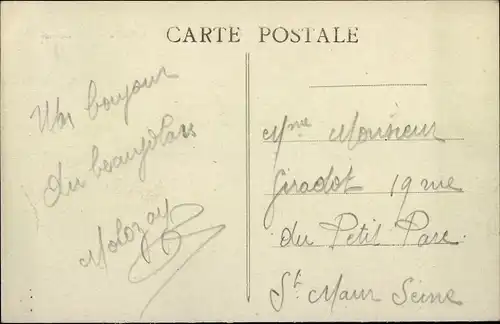 CARTE POSTALE
Un bonjour
du beaujolais
Molozay
Mme Monsieur
Giradot 19 rue
du Petit Parc
St Maur Seine